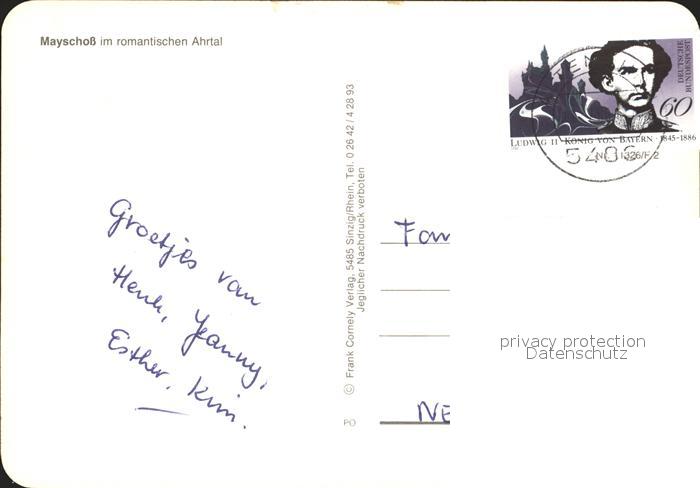 Mayschoß im romantischen Ahrtal
Groetjes van
Henk, Jeanny,
Esther, Kim.
© Frank Cornely Verlag, 5485 Sinzig/Rhein, Tel. 0 26 42 / 4 28 93
Jeglicher Nachdruck verboten
PO
DEUTSCHE
BUNDESPOST
60
LUDWIG II · KÖNIG VON BAYERN · 1845-1886
Fam
NE
privacy protection
Datenschutz